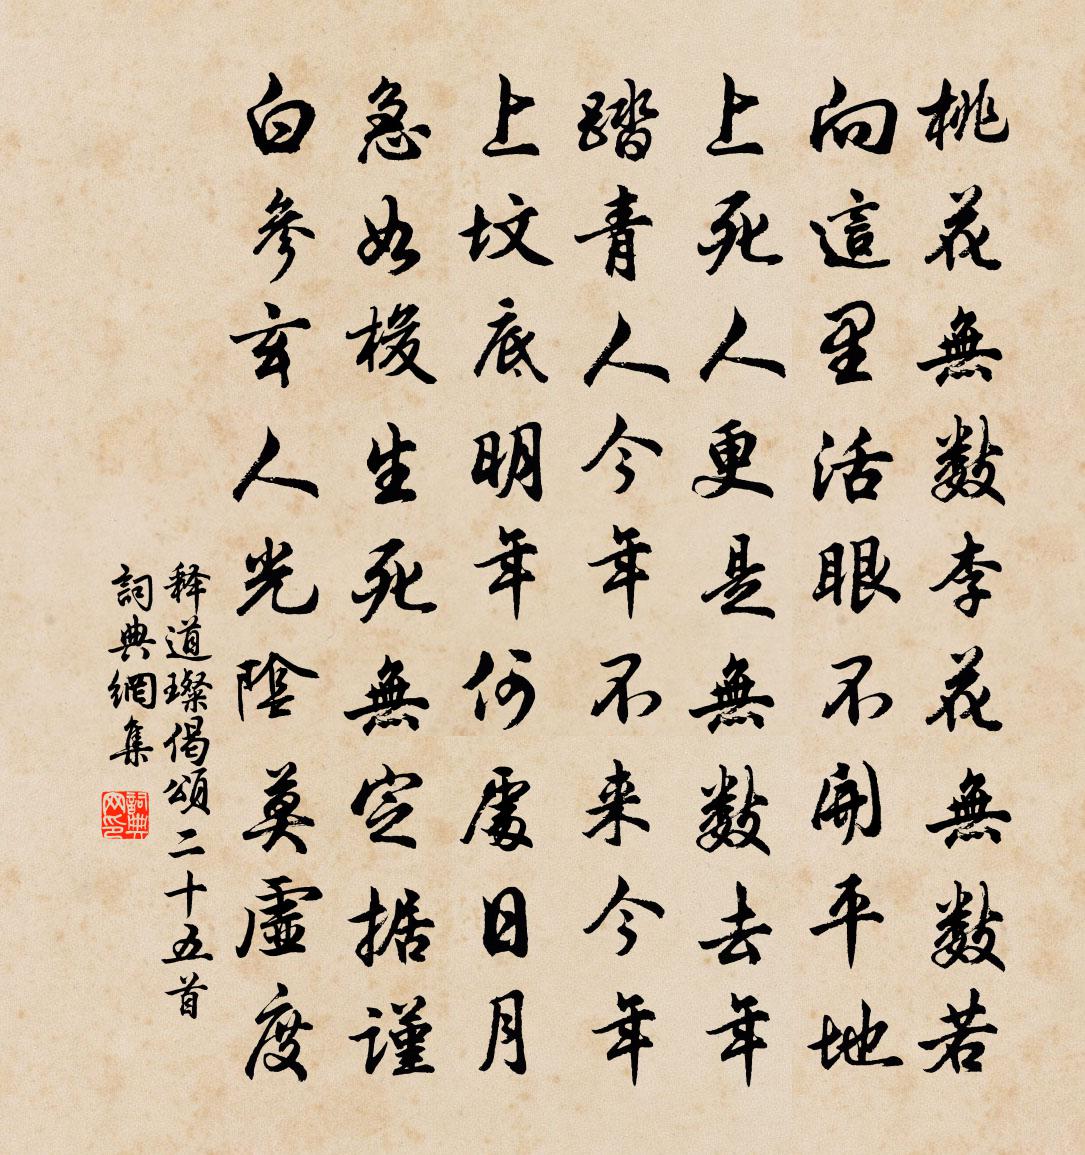 桃花無數李花無數若
向這里活眼不開平地
上死人更是無數去年
踏青人今年不来今年
上坟底明年何處日月
急如梭生死無定据謹
白參玄人光陰莫虛度
释道璨偈頌二十五首
詞典網集
詞典网印